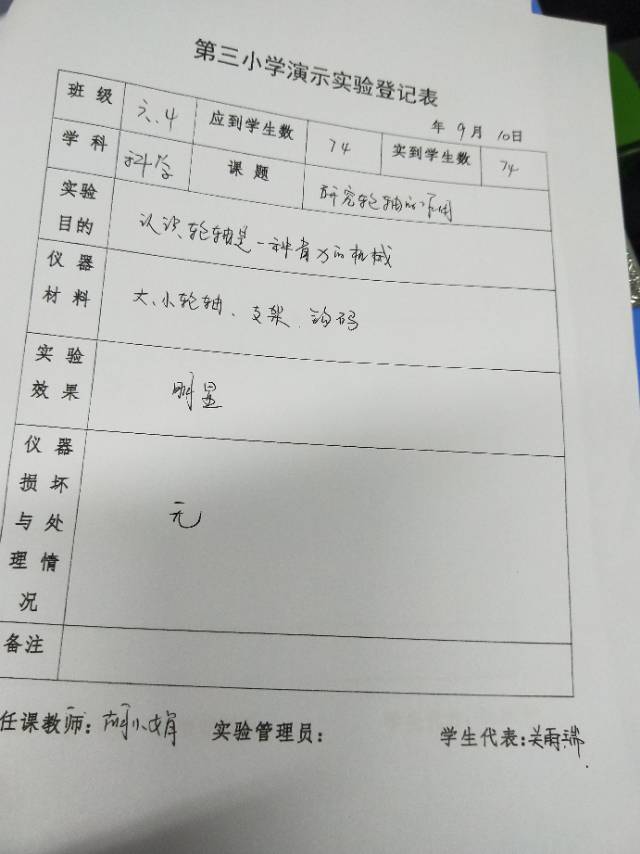 第三小学演示实验登记表
年 9月 10日
班级 六.4 应到学生数 74 实到学生数 74
学科 科学 课题 研究轮轴的作用
实验目的 认识轮轴是一种省力的机械
仪器材料 大、小轮轴、支架、钩码
实验效果 明显
仪器损坏与处理情况 无
备注
任课教师: 小娟 实验管理员: 学生代表: 关雨瑞